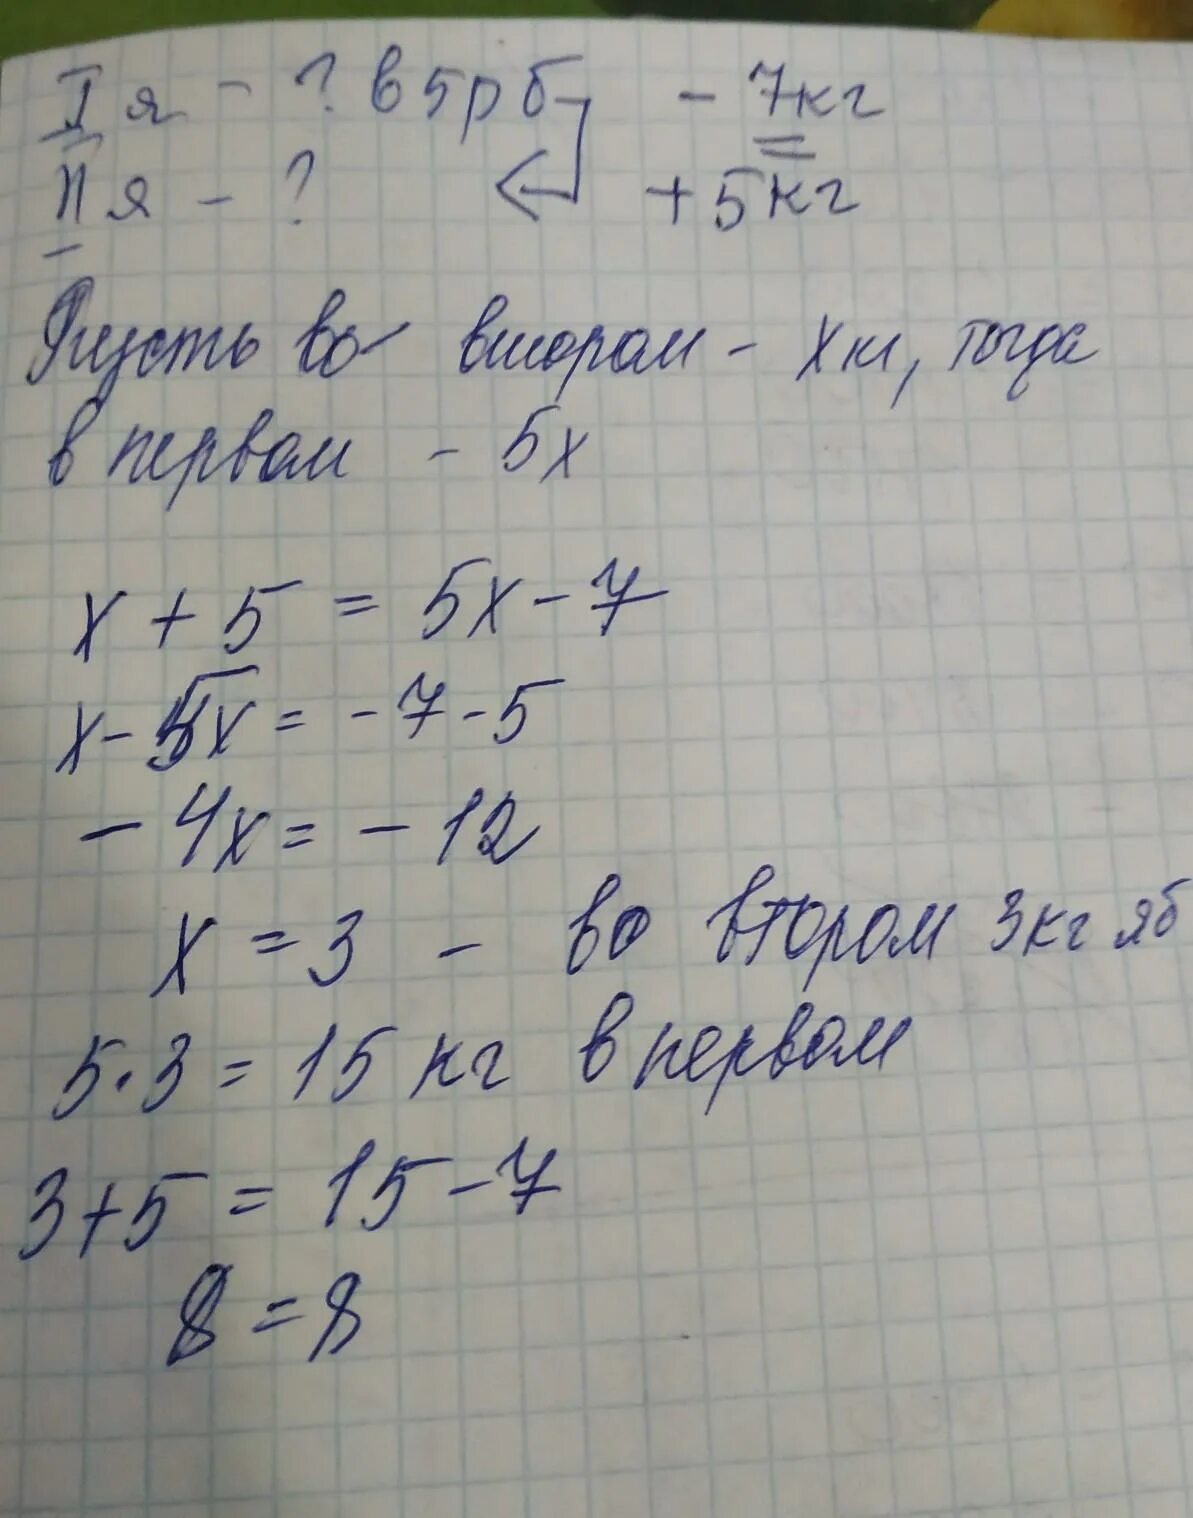 I я - ? в 5 р б - 7кг
II я - ? + 5кг
Пусть во втором - х кг, тогда
в первом - 5х
х + 5 = 5х - 7
х - 5х = - 7 - 5
- 4х = - 12
х = 3 - во втором 3кг яб
5 · 3 = 15 кг в первом
3 + 5 = 15 - 7
8 = 8